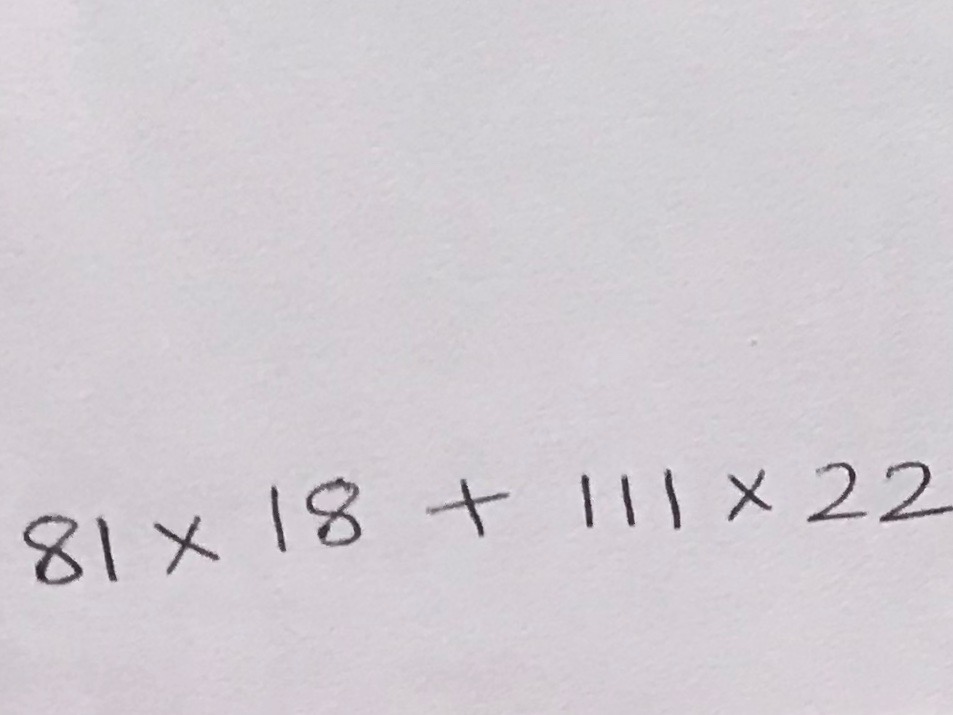 81 × 18 + 111 × 22